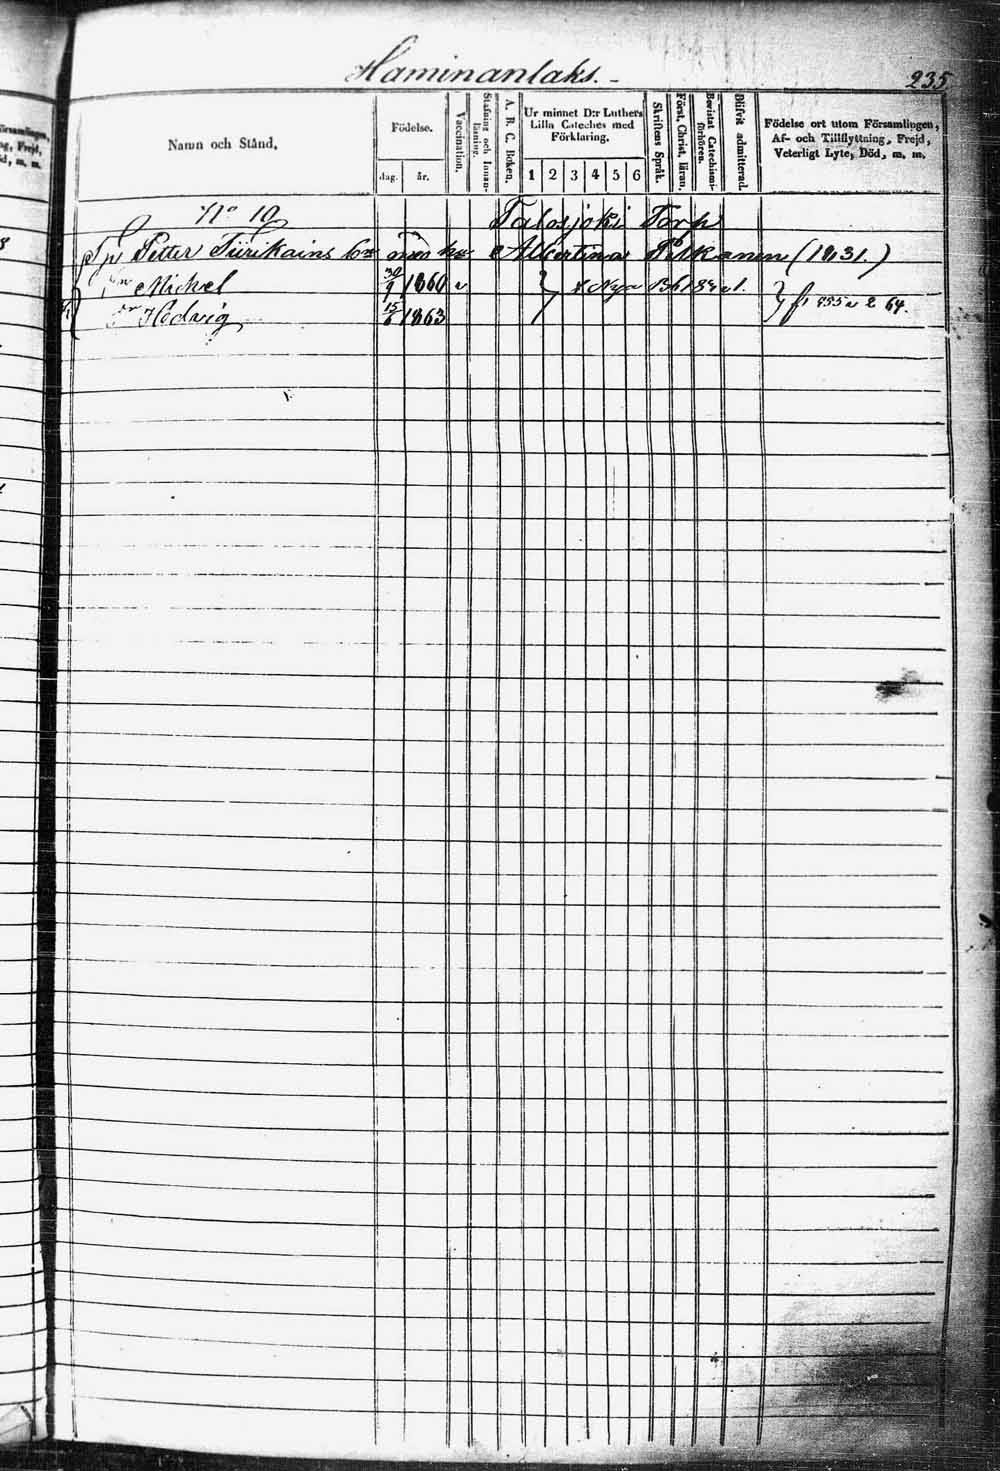 Haminanlaks. -
235
Namn och Stånd,
Födelse.
dag. år.
Vaccination.
Stafning och Innan-läsning.
A. B. C. Boken.
Ur minnet D:r Luthers Lilla Cateches med Förklaring.
1 2 3 4 5 6
Skriftens Språk.
Först. Christ. läran.
Bevistat Catechismi-förhören.
Blifvit admitterad.
Födelse ort utom Församlingen, Af- och Tillflyttning, Frejd, Veterligt Lyte, Död, m. m.
No 10 Talosjoki Torp
Petter Tiirikains Albertina Pitkänen (1831.)
Michel 30/9 1860 v
Hedvig 15/6 1863